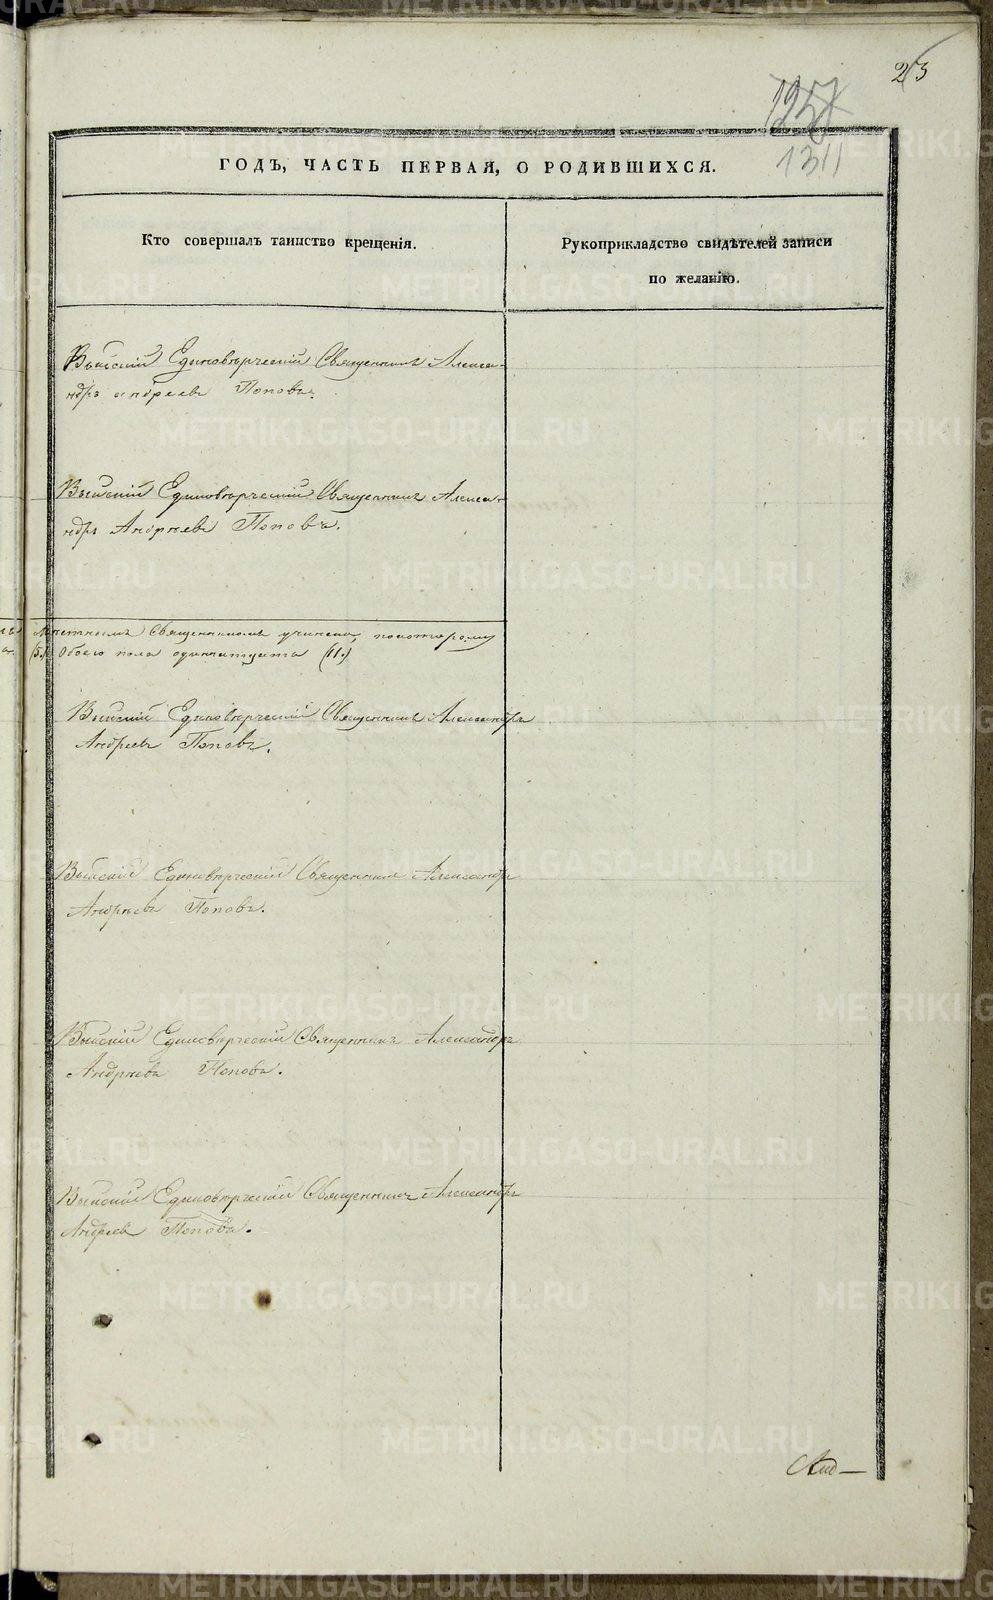 23
1257
1311
ГОДЪ, ЧАСТЬ ПЕРВАЯ, О РОДИВШИХСЯ.
Кто совершалъ таинство крещенія.
Рукоприкладство свидѣтелей записи
по желанію.
Выйскій Единовѣрческій Священникъ Алекса-
ндръ Андреевъ Поповъ.
Выйскій Единовѣрческій Священникъ Алекса-
ндръ Андрѣевъ Поповъ.
мѣстнымъ Священникомъ учинена, по которому
(5.) Обоего пола одинатцать (11.)
Выйскій Единовѣрческій Священникъ Александръ
Андреевъ Поповъ.
Выйскій Единовѣрческій Священникъ Александръ
Андрѣевъ Поповъ.
Выйскій Единовѣрческій Священникъ Александръ
Андрѣевъ Поповъ.
Выйскій Единовѣрческій Священникъ Александръ
Андреевъ Поповъ.
METRIKI.GASO-URAL.RU